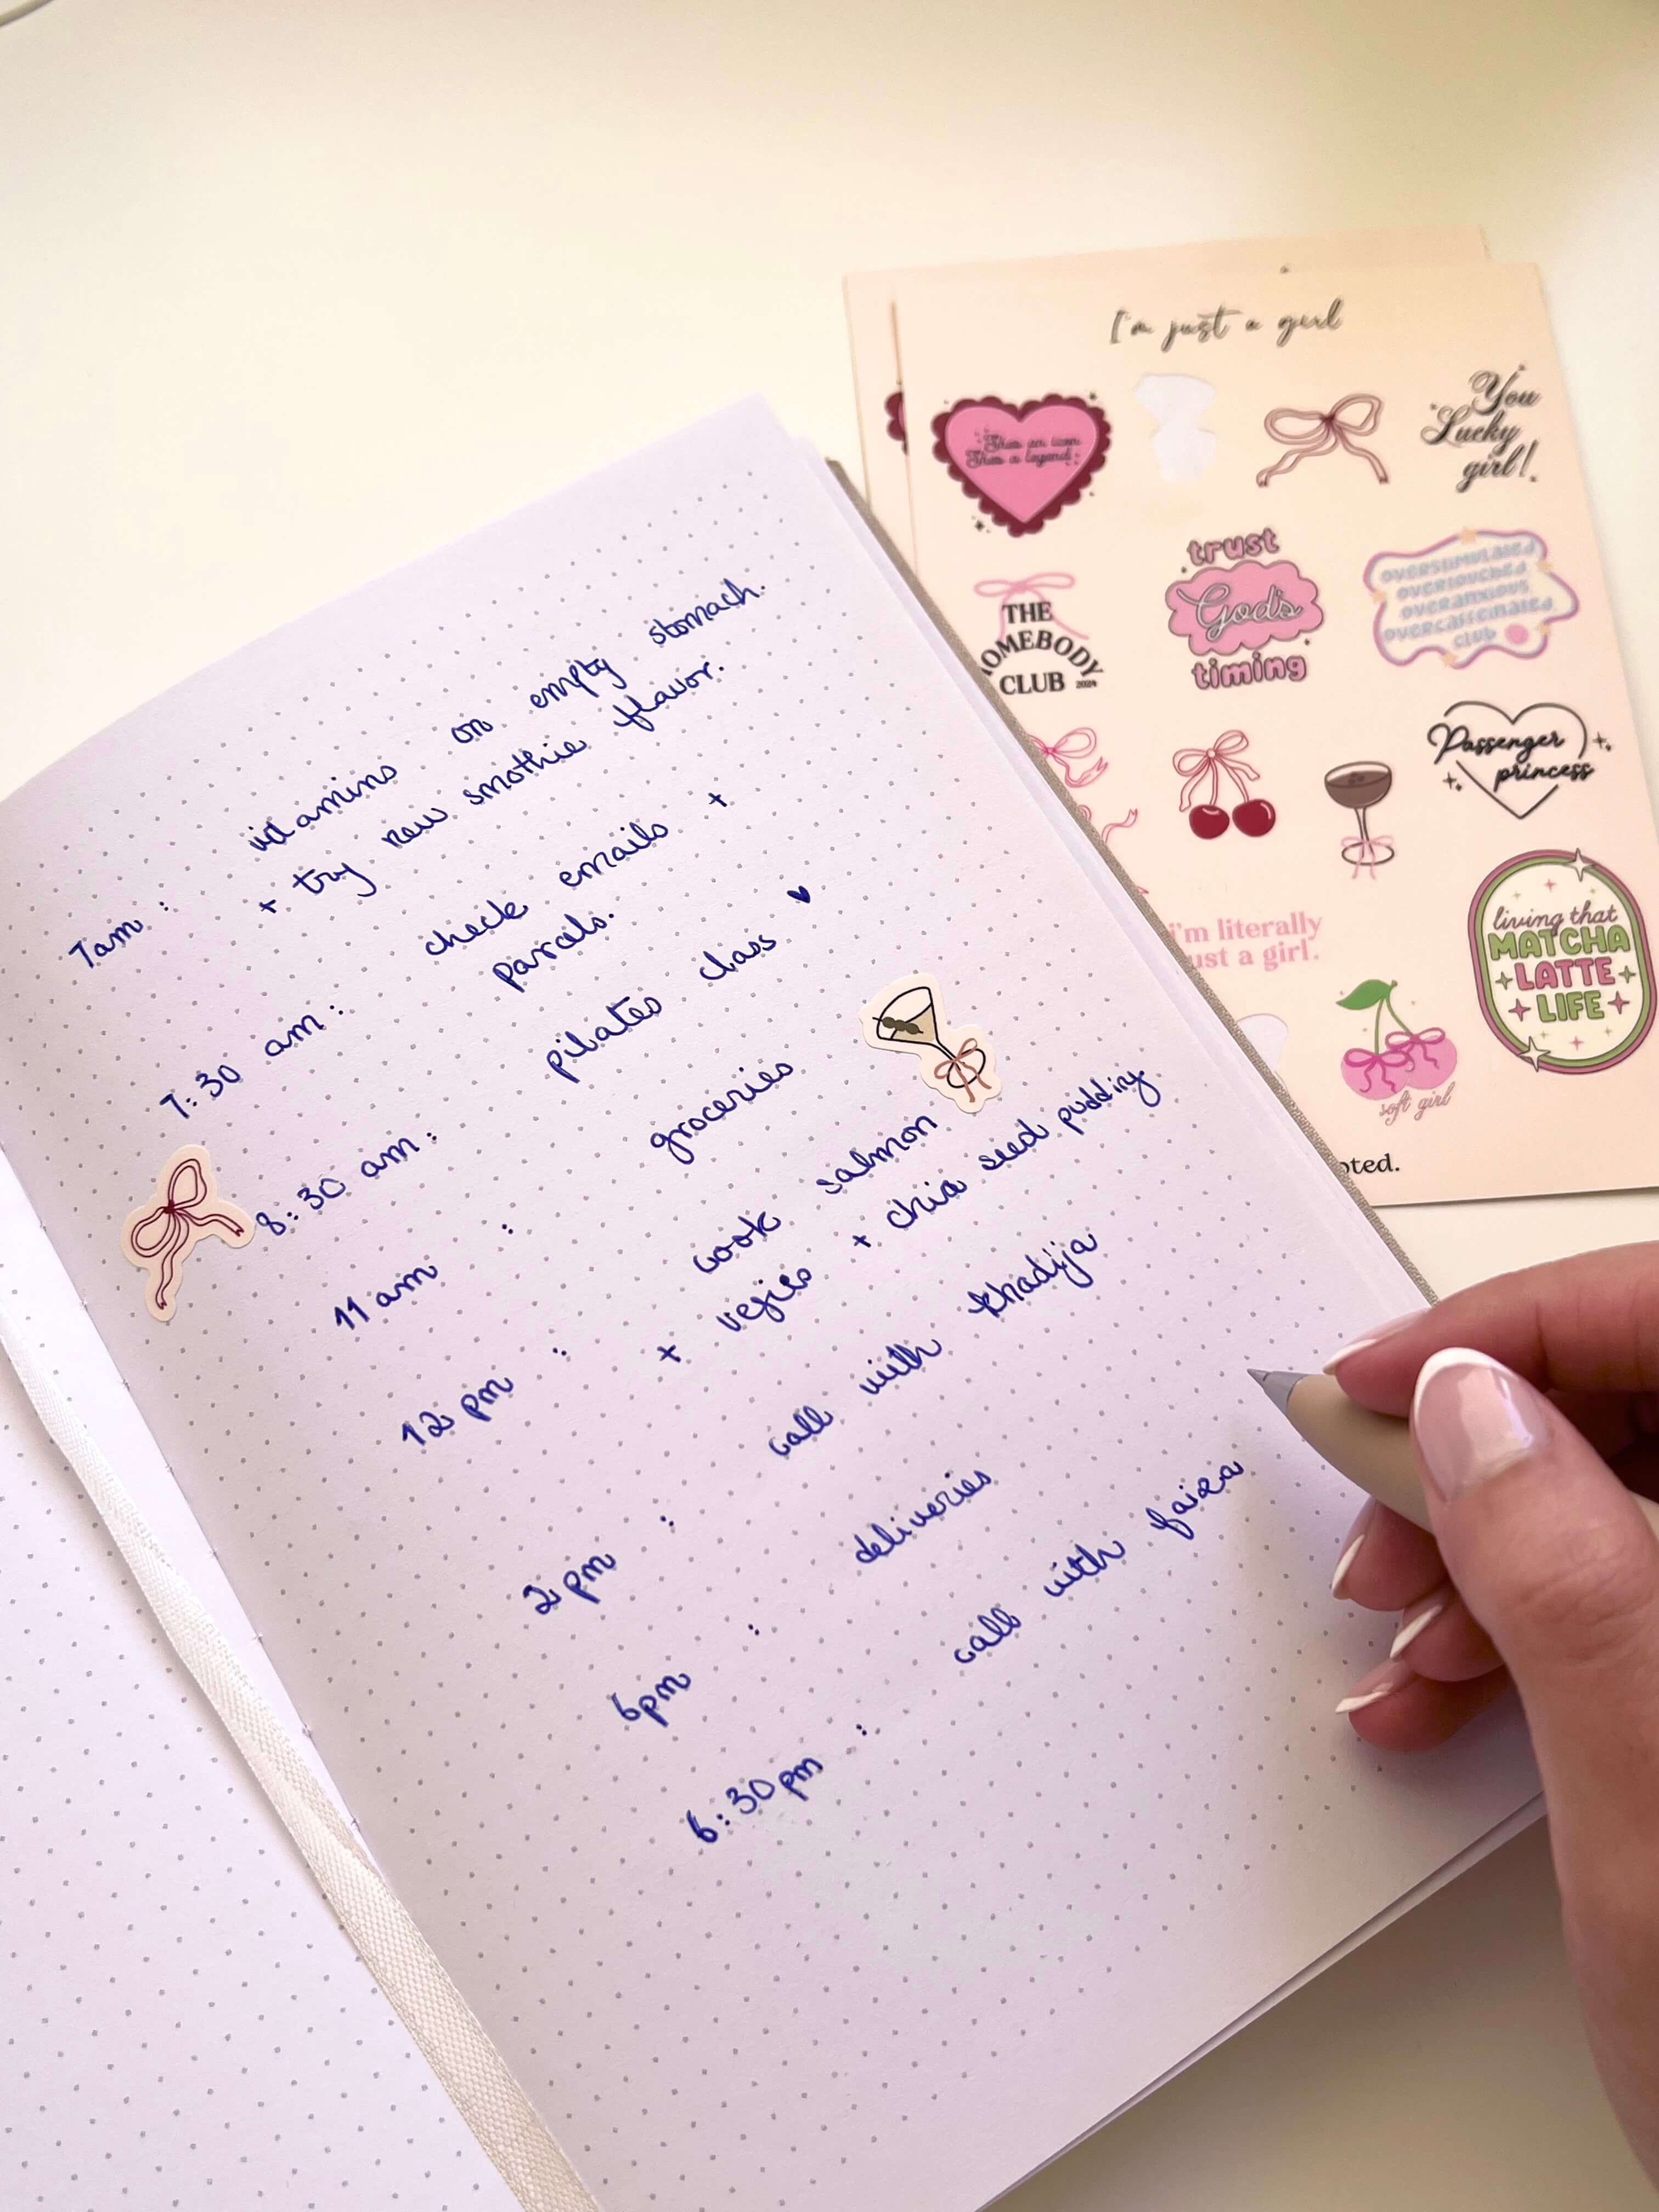 7am : vitamins on empty stomach.
+ try new smothie flavor.
7:30 am : check emails +
parcels.
8:30 am : pilates class ♥
11 am : groceries
12 pm : cook salmon
+ vegies + chia seed pudding
2 pm : call with khadija
6pm : deliveries
6:30 pm : call with faiza
I'm just a girl
She's an icon
She's a legend
You
Lucky
girl!
THE
HOMEBODY
CLUB 2024
trust
God's
timing
OVERSTIMULATED
OVERTOUCHED
OVERANXIOUS
OVERCAFFEINATED
CLUB
Passenger
princess
I'm literally
just a girl.
living that
MATCHA
LATTE
LIFE
soft girl
oted.